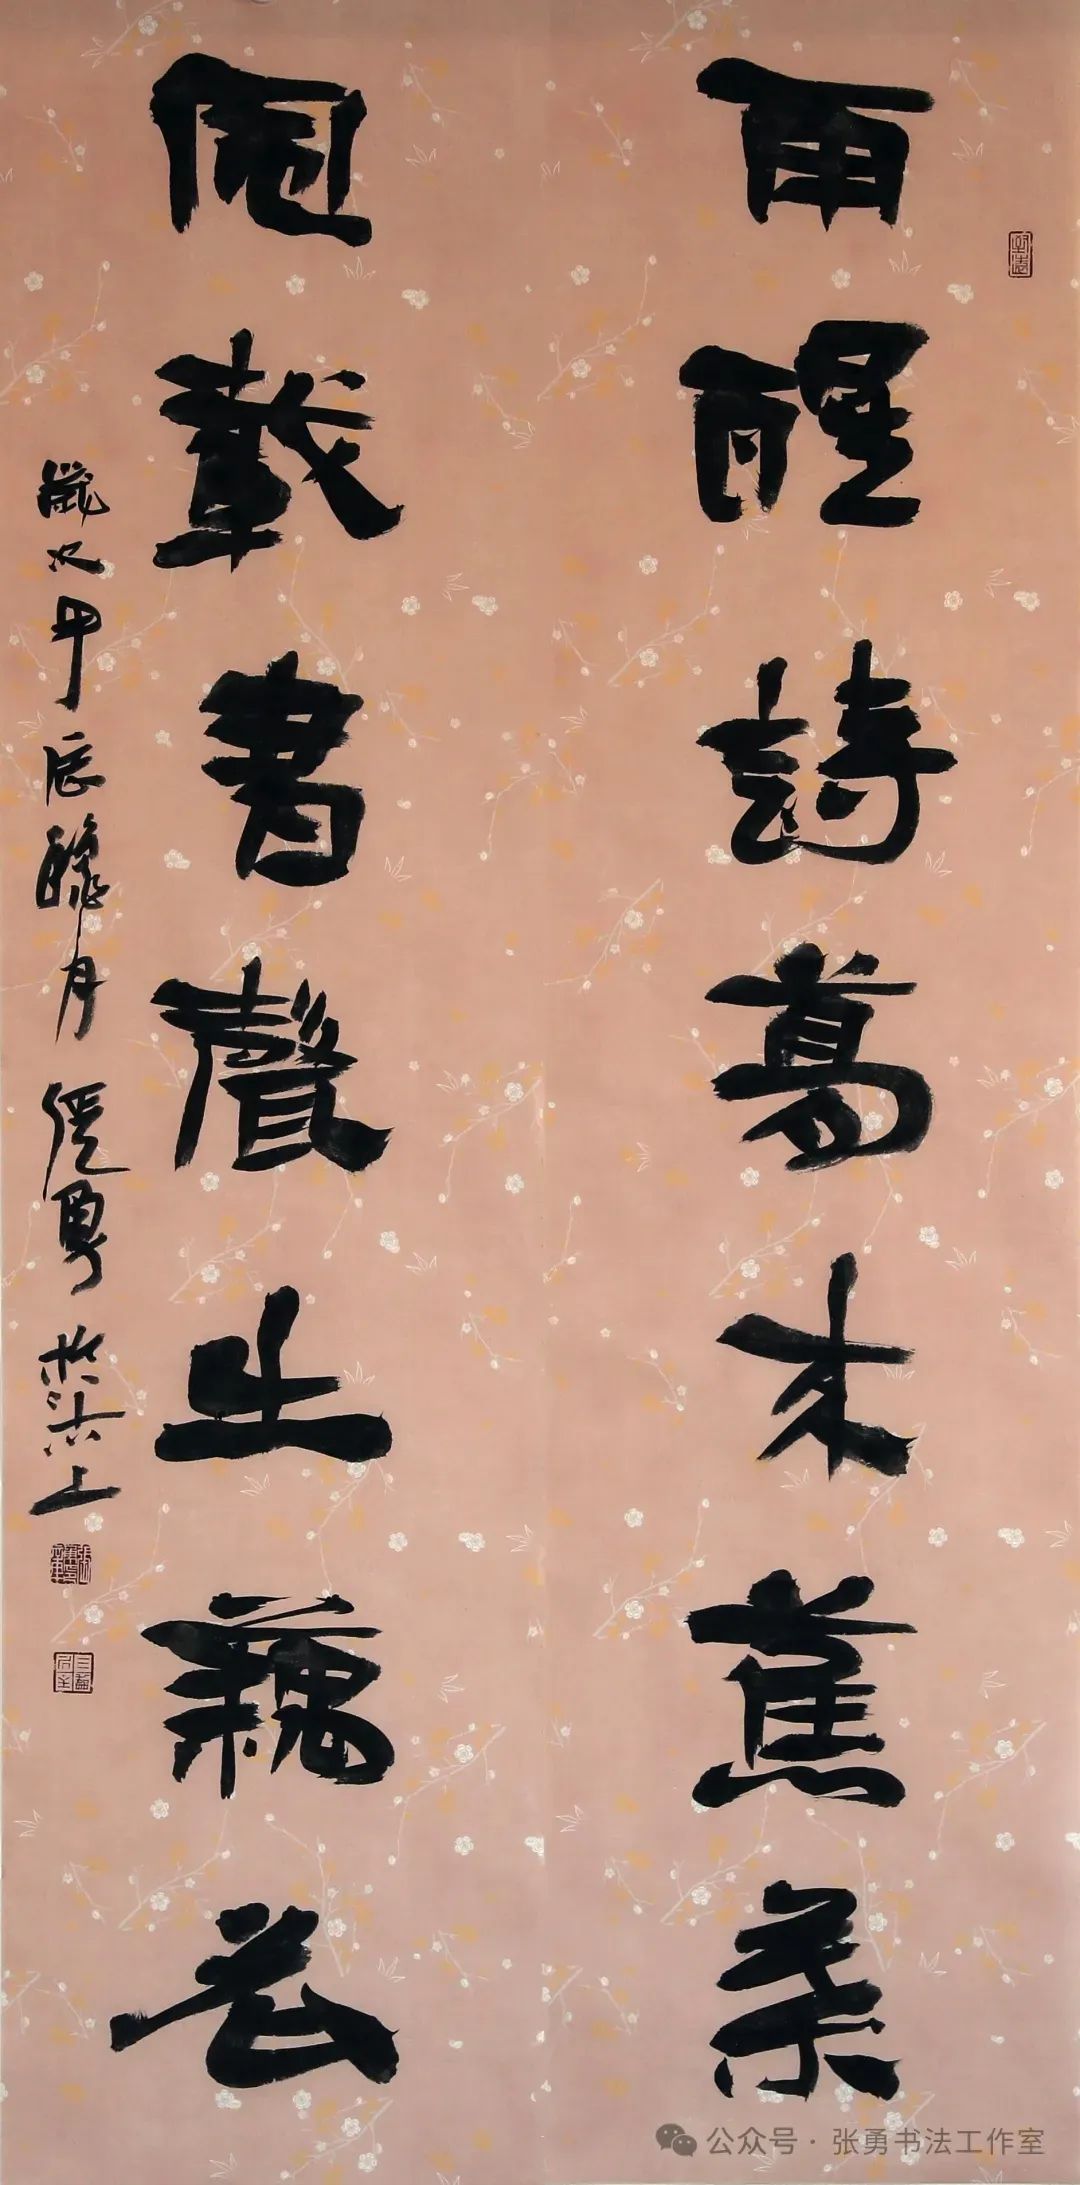 雨醒詩夢来蕉葉
風載書聲出藕花
歲次甲辰臘月張勇於沽上
公众号·张勇书法工作室